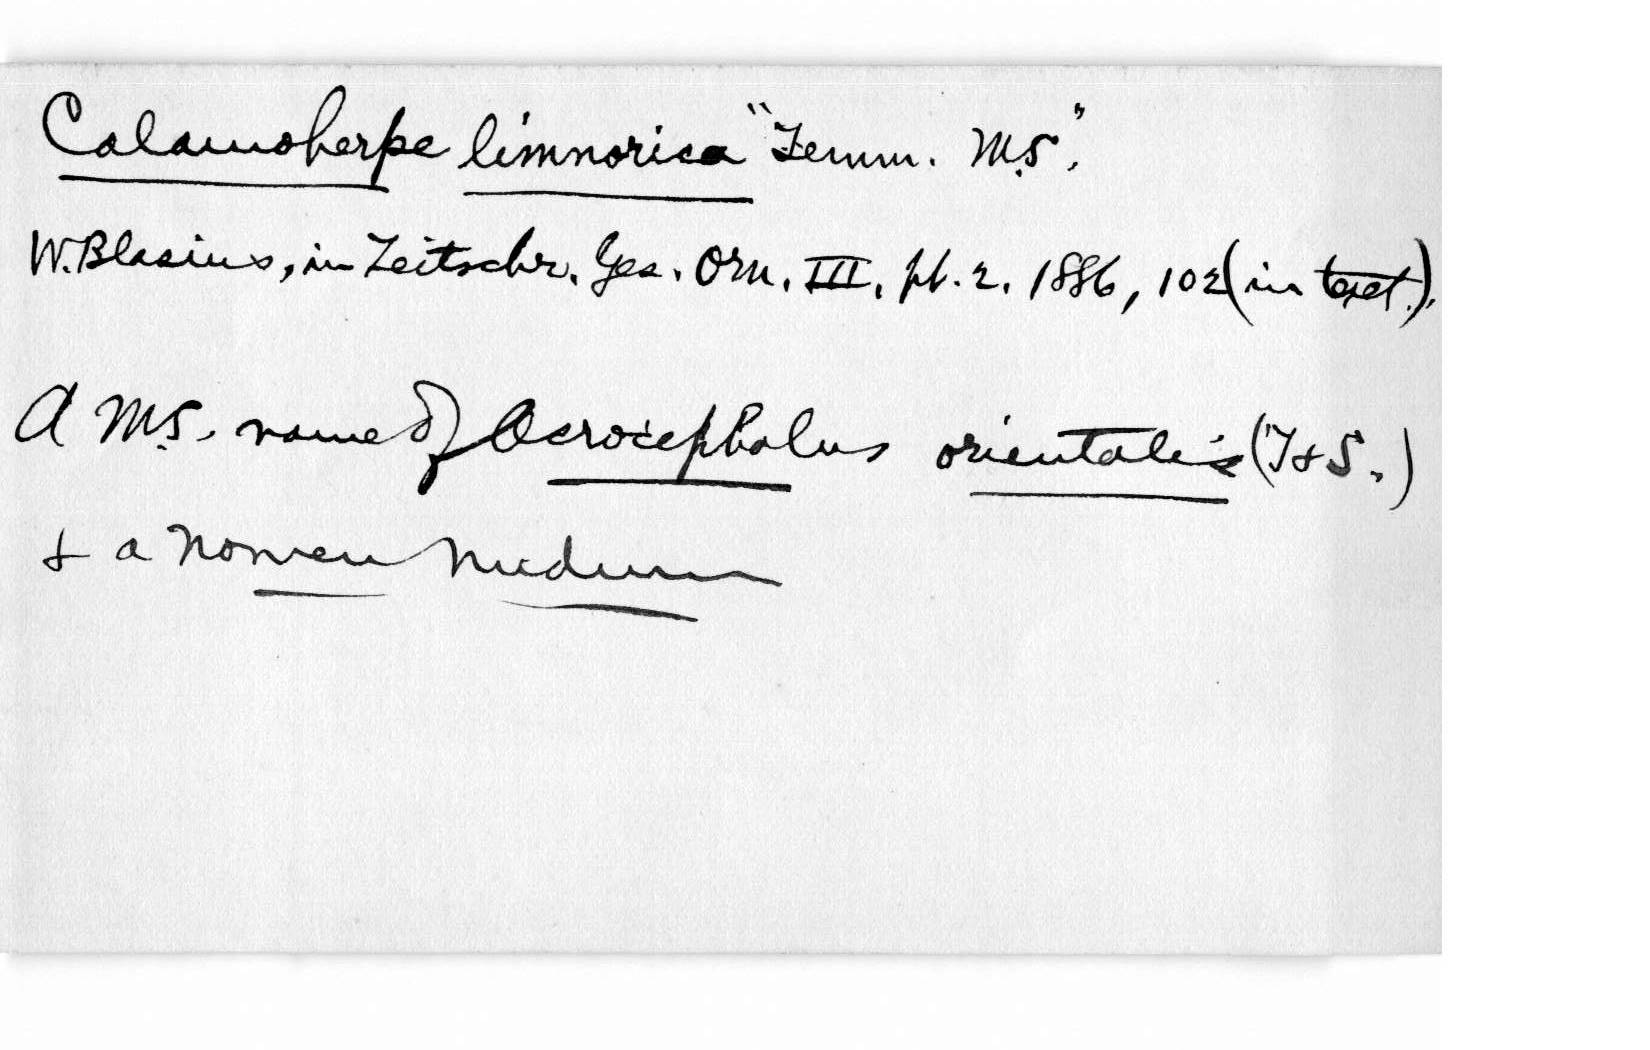 Calamoherpe limnorica "Temm. MS".
W. Blasius, in Zeitschr. Ges. Orn. III, pt. 2. 1886, 102 (in text.).
A MS. name of Acrocephalus orientalis (T & S.)
& a nomen nudum